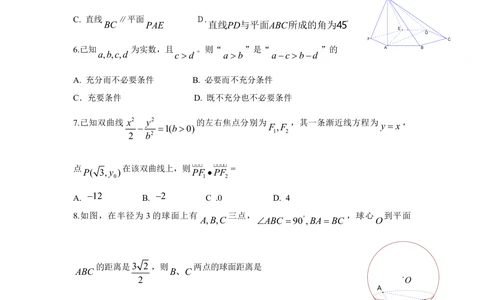 C. 直线BC∥平面PAE D. 直线PD与平面ABC所成的角为45°
6.已知a,b,c,d为实数，且c>d。则“a>b”是“a-c>b-d”的
A. 充分而不必要条件 B. 必要而不充分条件
C．充要条件 D. 既不充分也不必要条件
7.已知双曲线x²/2 - y²/b² =1(b>0)的左右焦点分别为F₁,F₂，其一条渐近线方程为y=x，
点P(√3,y₀)在该双曲线上，则PF₁•PF₂=
A. -12 B. -2 C .0 D. 4
8.如图，在半径为 3 的球面上有A,B,C三点，∠ABC=90°,BA=BC，球心O到平面
ABC的距离是3√2/2，则B、C两点的球面距离是
E
D
F
A
B
C
O
A